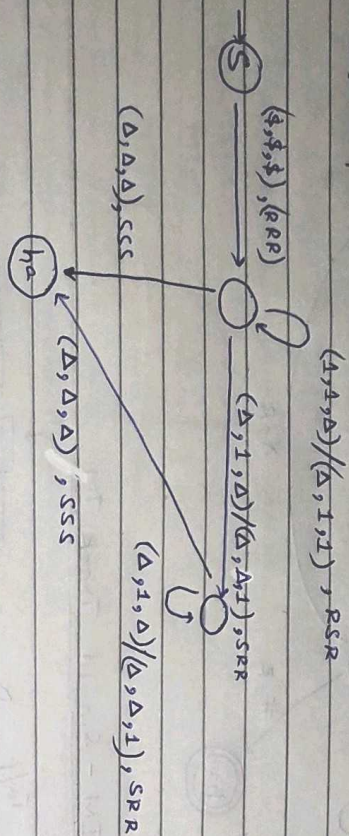 S
($,$,$),(RRR)
(1,1,Δ)/(Δ,1,1), RSR
(Δ,1,Δ)/(Δ,Δ,1),SRR
(Δ,Δ,Δ),SSS
(Δ,1,Δ)/(Δ,Δ,1), SRR
(Δ,Δ,Δ),SSS
ha